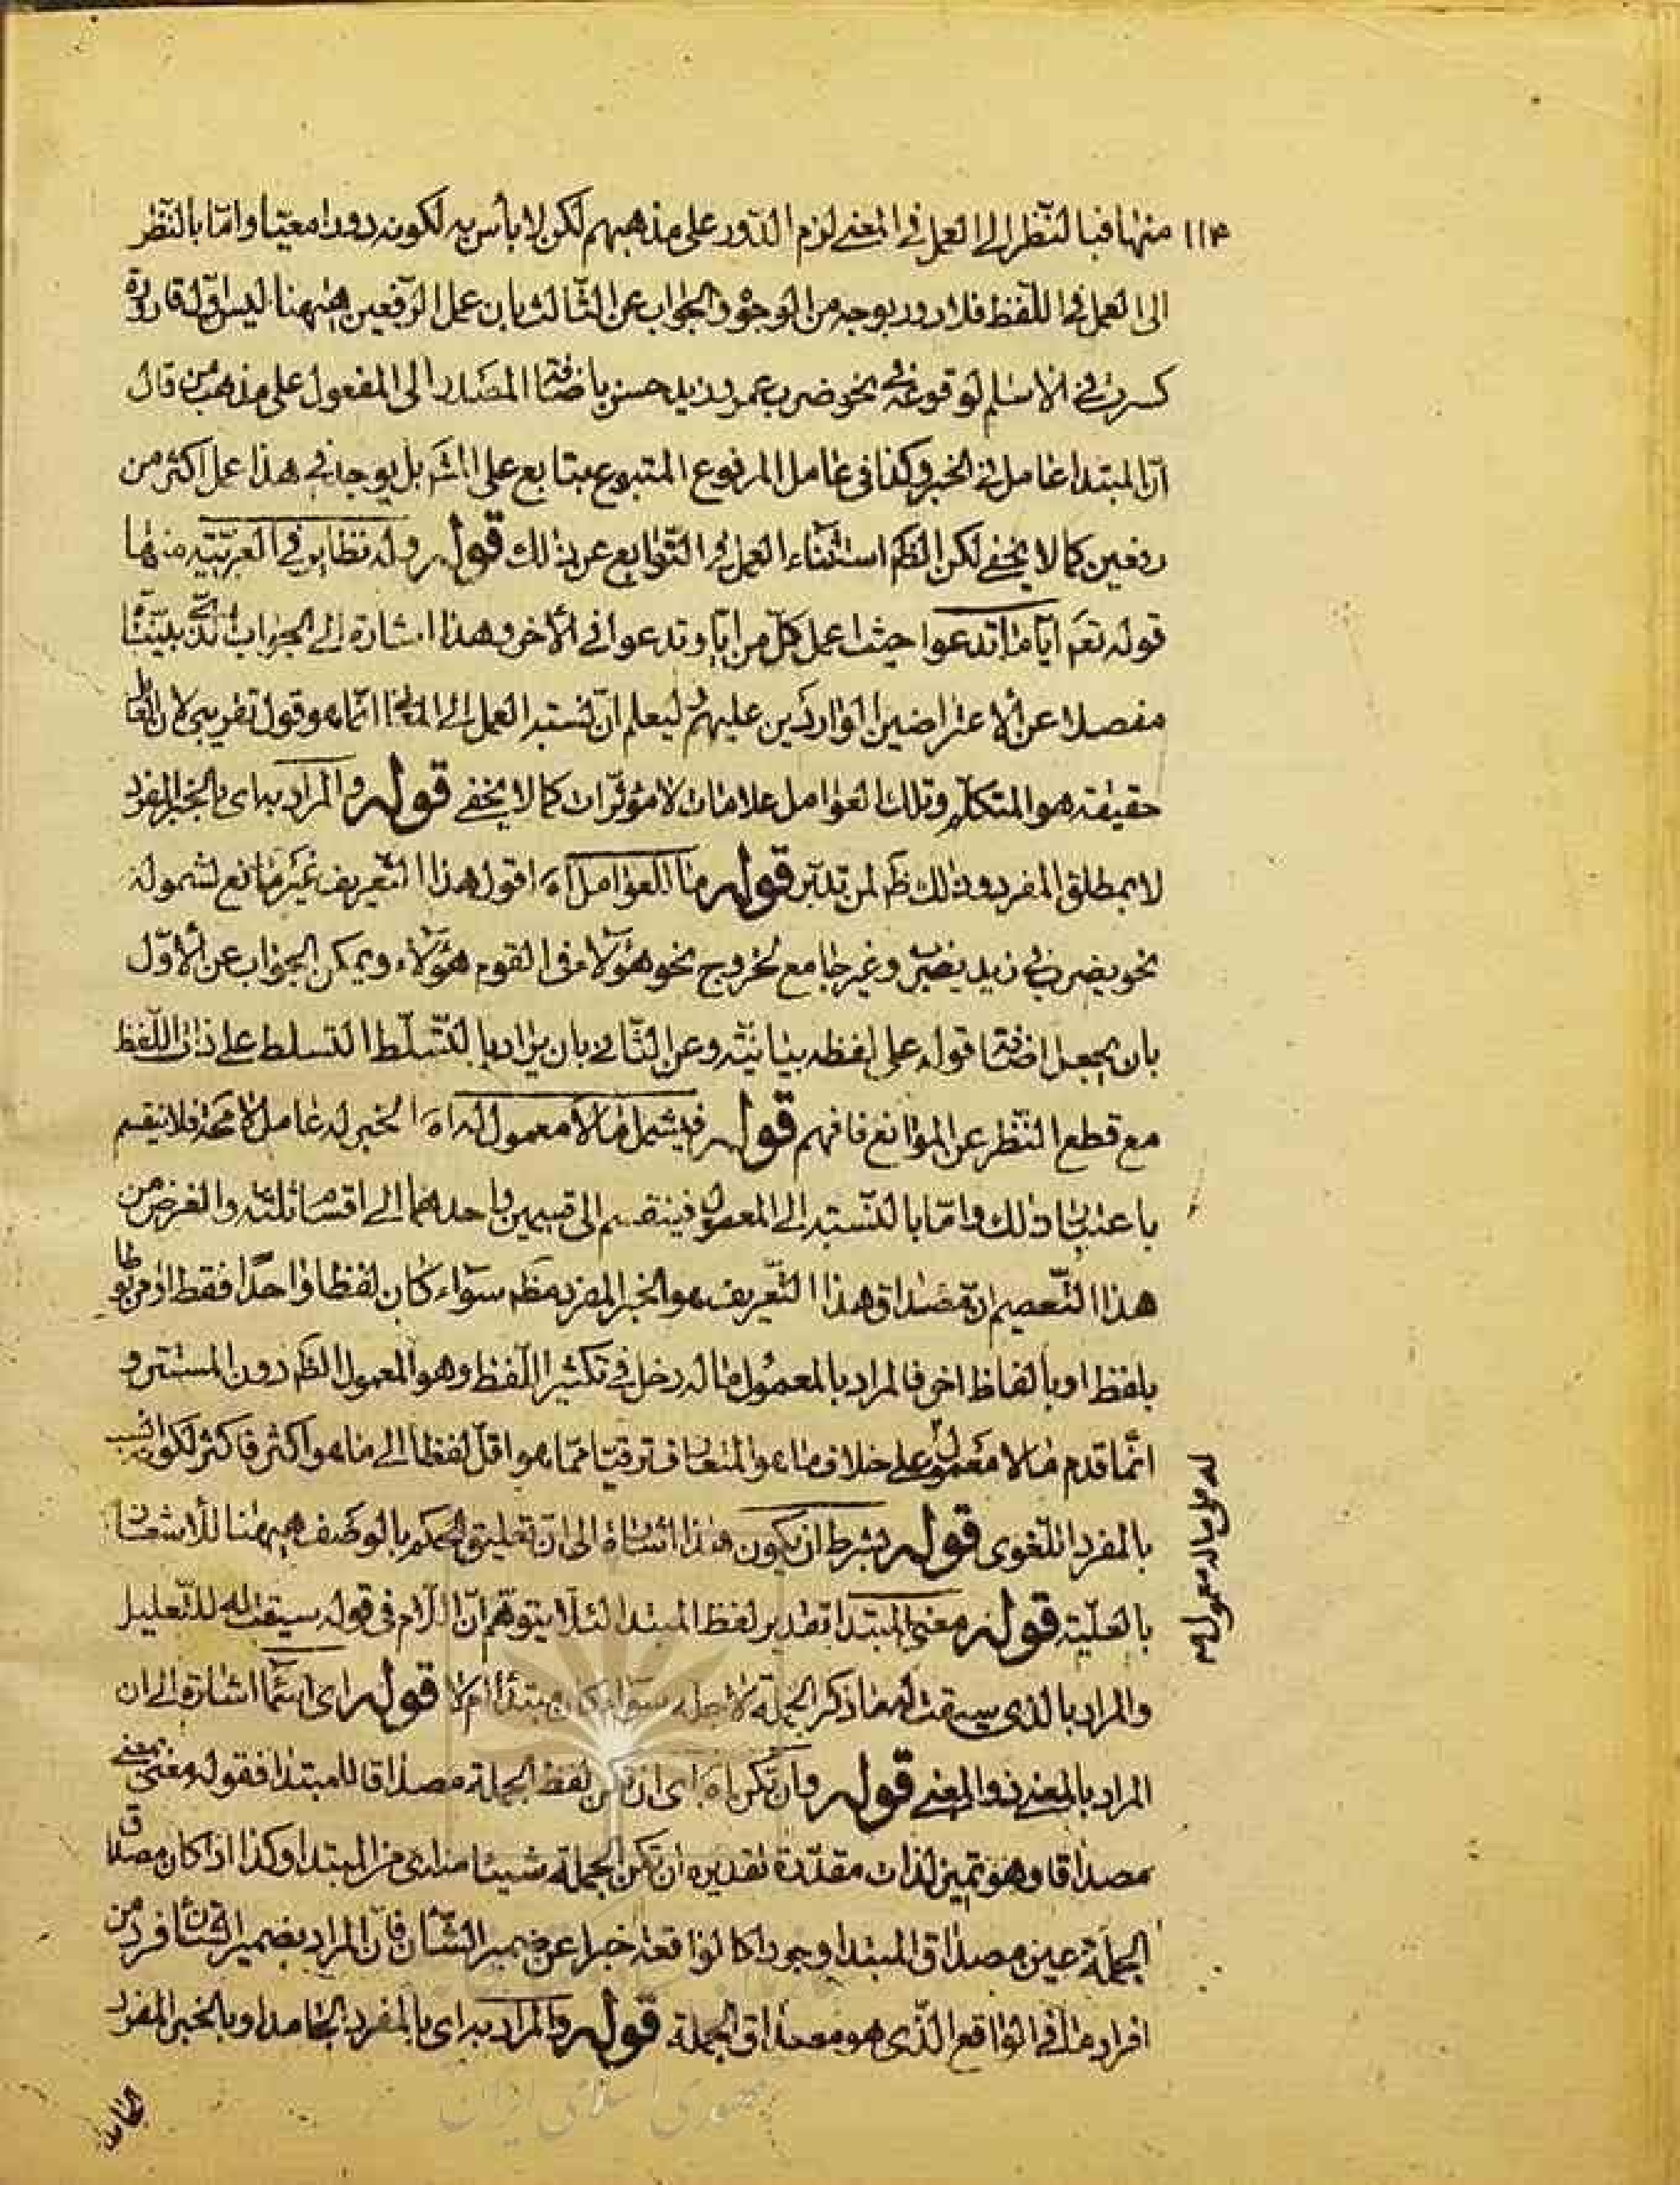 ١١٤ منها فبالنظر الى العمل في المعنى لزم الدور على مذهبهم لكن لا بأس به لكونه دورا معيّا وامّا بالنّظر
الى العمل في اللّفظ فلا دور بوجه من الوجوه والجواب عن الثّالث بان عمل الرّفعين ههنا ليس اوّل قارورة
كسرت في الاسلم لوقوعه في نحو ضرب عمرو زيد حسن باضافة المصدر الى المفعول على مذهب من قال
انّ المبتدا عامل في الخبر وكذا في عامل المرفوع المتبوع بتابع على بل يوجد في هذا عمل اكثر من
رفعين كما لا يخفى لكن الظم استثناء العمل في التّوابع عن ذلك قوله وله نظاير في العربيّة منها
قوله تعم ايّا ما تدعوا حيث اعمل كلّ من ايّا وتدعوا في الأخر وهذا اشارة الى الجواب بيّنّا
مفصلا عن الاعتراضين الواردين عليهم ليعلم انّ نسبة العمل الى انّما هو قول تقريبي لانّ العامل
حقيقة هو المتكلّم وتلك العوامل علامات لا مؤثّرات كما لا يخفى قوله والمراد به اى بالخبر المفرد
لا بمطلق المفرد وذلك ظم لمن تدبّر قوله ما للعوامل آه اقول هذا التّعريف غير مانع لشموله
نحو يضرب في زيد يضرب وغير جامع لخروج نحو هؤلاء في القوم هؤلاء ويمكن الجواب عن الأوّل
بان يجعل اضافة قوله على لفظه بيانيّة وعن الثّاني بان يراد بالتّسلّط التسلط على ذات اللّفظ
مع قطع النّظر عن الموانع فافهم قوله فيشمل ما لا معمول له آه الخبر له عامل لا محة فلا ينقسم
باعتبار ذلك وامّا بالنّسبة الى المعمول فينقسم الى قسمين واحدهما الى اقسام ثلثة والغرض من
هذا التّعميم انّ مصداق هذا التّعريف هو الخبر المفرد مظم سواء كان لفظا واحدا فقط او مربوطا
بلفظ او بالفاظ اخر فالمراد بالمعمول ما له دخل في تكثير اللّفظ وهو المعمول الظم دون المستتر و
انّما قدم ما لا معمول على خلاف ما هو المتعارف ترقيا ممّا هو اقلّ لفظا الى ما هو اكثر فاكثر لكونه انسب
بالمفرد اللّغوى قوله بشرط ان يكون هذا اشارة الى انّ تعليق الحكم بالوصف ههنا للاشعار
بالعليّة قوله معنى المبتدا بتقدير لفظ المبتدا لئلا يتوهّم انّ اللّام في قوله سيقت له للتّعليل
والمراد بالذى سيقت له ما ذكر الجملة لاجله سواء كان مبتدأ ام لا قوله اى اشارة الى ان
المراد بالمعنى ذو المعنى قوله وان تكن آه اى ان تكن لفظ الجملة مصداقا للمبتدا فقوله معنى بمعنى
مصداقا وهو تميز لذات مقدّرة تقديره ان تكن الجملة شيئا من المبتدا وكذا اذا كان مصداق
الجملة عين مصداق المبتدا وجودا كالواقعة خبرا عن ضمير الشّان فانّ المراد بضمير الشّان فرد من
افراد ما في الواقع الذّى هو مصداق الجملة قوله والمراد به اى بالمفرد الجامد او بالخبر المفرد
الجامد
جمهوری اسلامی ایران